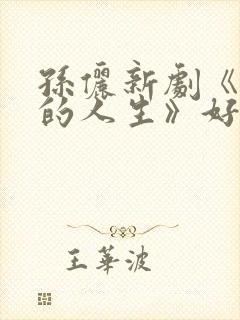 孫儷新劇《
的人生》好
王華波